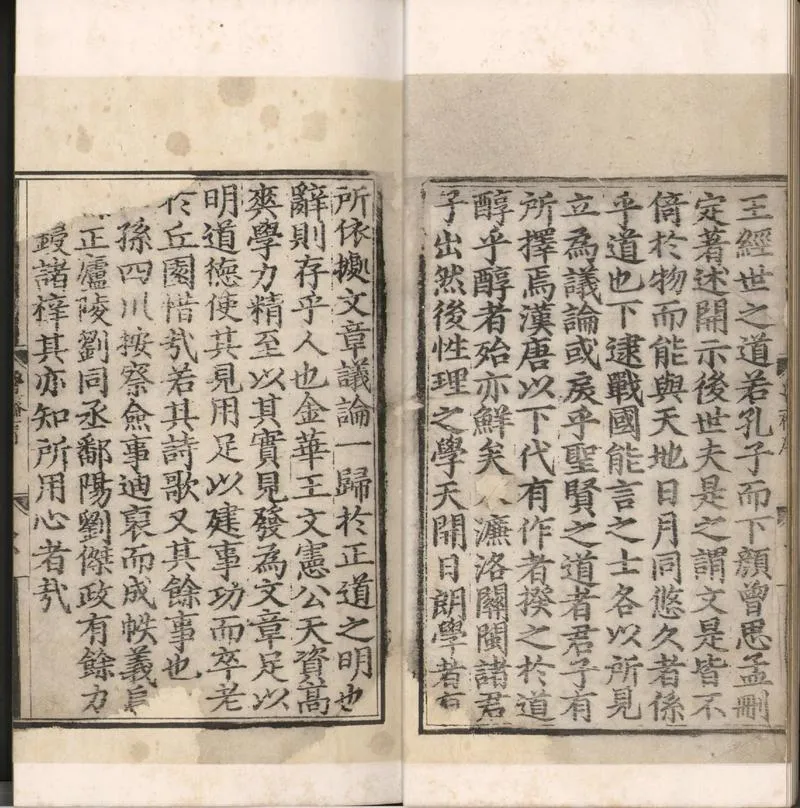 王經世之道若孔子而下顏曾思孟刪
定著述開示後世夫是之謂文是皆不
倚於物而能與天地日月同悠久者係
乎道也下逮戰國能言之士各以所見
立為議論或戾乎聖賢之道者君子有
所擇焉漢唐以下代有作者揆之於道
醇乎醇者殆亦鮮矣濂洛關閩諸君
子出然後性理之學天開日朗學者有
所依據文章議論一歸於正道之明也
辭則存乎人也金華王文憲公天資高
爽學力精至以其實見發為文章足以
明道德使其見用足以建事功而卒老
於丘園惜㢤若其詩歌又其餘事也
孫四川按察僉事迪裒而成帙義
正廬陵劉同丞鄱陽劉傑政有餘力
鋟諸梓其亦知所用心者㢤